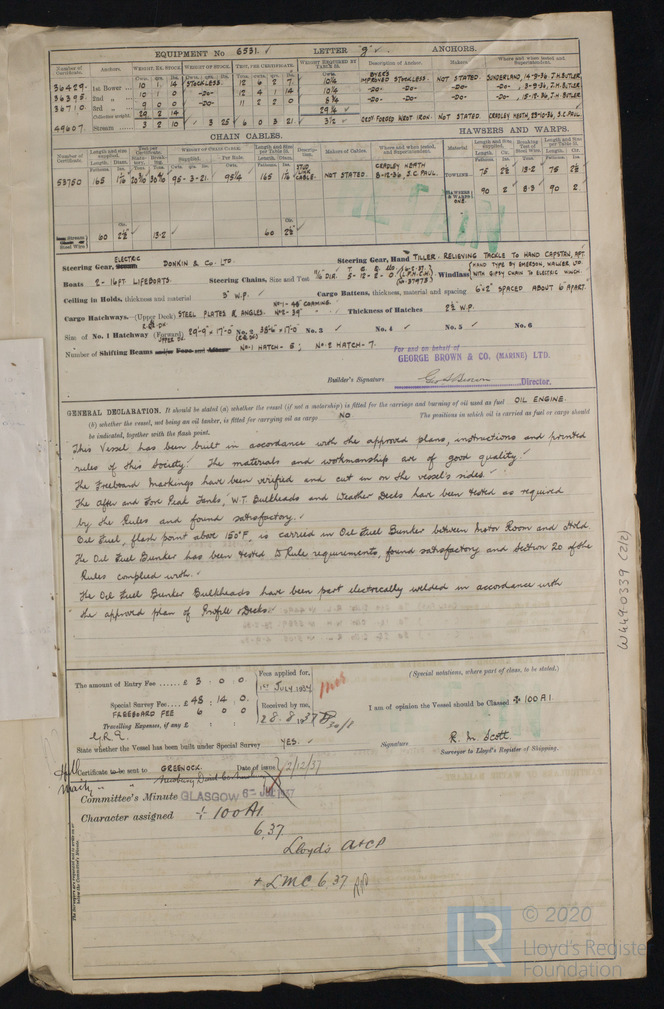 EQUIPMENT No 6531. LETTER "g" ANCHORS.
Number of Certificate. Anchors. WEIGHT, EX. STOCK. WEIGHT OF STOCK. TEST, PER CERTIFICATE. WEIGHT REQUIRED BY TABLE 31. Description of Anchor. Makers Where and when tested and Superintendent.
36429. 1st Bower 10 1 14 STOCKLESS. 12 6 2 7 10¼ BYERS IMPROVED STOCKLESS. NOT STATED. SUNDERLAND, 14-9-36, J.H.BUTLER
36395. 2nd " 10 1 0 -DO- 12 4 1 14 10¼ -DO- -DO- " , 3-9-36, J.H.BUTLER
36710. 3rd " 9 0 0 -DO- 11 2 2 0 8¾ -DO- -DO- " , 15-12-36, J.H.BUTLER
Collective weight. 29 2 14 29¼
49607. Stream 3 2 10 3 25 6 0 3 21 3½ ORDY FORGED WROT IRON. NOT STATED. CRADLEY HEATH, 23-10-36, S.C. PAUL.
CHAIN CABLES. HAWSERS AND WARPS.
53750 165 1 1/16 95-3-21. 95¼ 165 1 1/16 STUD LINK CABLE. NOT STATED. CRADLEY HEATH 8-12-36, S.C. PAUL. TOWLINE 75 2⅝ 13·2 75 2⅝
HAWSERS & WARPS ONE 90 2 8·3 90 2
60 2⅝ 13·2 60 2⅝
Steering Gear, ELECTRIC DONKIN & Co. LTD. Steering Gear, Hand TILLER. RELIEVING TACKLE TO HAND CAPSTAN, AFT.
Boats 2-16FT LIFEBOATS. Steering Chains, Size and Test Windlass HAND TYPE BY EMERSON, WALKER LTD. WITH GIPSY CHAIN TO ELECTRIC WINCH.
Ceiling in Holds, thickness and material 3" W.P. Cargo Battens, thickness, material and spacing 6"x2" SPACED ABOUT 6" APART.
Cargo Hatchways. (Upper Deck) STEEL PLATES & ANGLES. No.1-48" COAMING. No.2-39" Thickness of Hatches 2½" W.P.
Size of No. 1 Hatchway (Forward) 29'-9" x 17'-0" No. 2 38'-6" x 17'-0" No. 3 No. 4 No. 5 No. 6
Number of Shifting Beams and/or Fore and Afters No.1 HATCH - 5; No.2 HATCH - 7.
For and on behalf of
GEORGE BROWN & CO. (MARINE) LTD.
Builder's Signature Geo. S. Brown Director.
GENERAL DECLARATION. It should be stated (a) whether the vessel (if not a motorship) is fitted for the carriage and burning of oil used as fuel OIL ENGINE.
(b) whether the vessel, not being an oil tanker, is fitted for carrying oil as cargo NO The positions in which oil is carried as fuel or cargo should
be indicated, together with the flash point.
This Vessel has been built in accordance with the approved plans, instructions and printed
rules of this Society. The materials and workmanship are of good quality.
The Freeboard Markings have been verified and cut in on the vessel's sides.
The After and Fore Peak Tanks, W.T. Bulkheads and Weather Decks have been tested as required
by the Rules and found satisfactory.
Oil Fuel, flash point above 150°F, is carried in Oil Fuel Bunker between Motor Room and Hold.
The Oil Fuel Bunker has been tested to Rule requirements found satisfactory and Section 20 of the
Rules complied with.
The Oil Fuel Bunker Bulkheads have been part electrically welded in accordance with
the approved plan of Profile & Decks.
The amount of Entry Fee £ 3 : 0 : 0 Fees applied for, (Special notations, where part of class, to be stated.)
1st JULY, 1937
Special Survey Fee £ 48 : 14 : 0 Received by me, I am of opinion the Vessel should be Classed ✠ 100A1.
FREEBOARD FEE 6 0 0 28.8.1937
Travelling Expenses, if any £ : :
State whether the Vessel has been built under Special Survey YES. Signature R. M. Scott
Surveyor to Lloyd's Register of Shipping.
Certificate to be sent to GREENOCK. Date of issue 2/12/37
Committee's Minute GLASGOW 6- JUL 1937
Character assigned ✠ 100A1
6,37
Lloyd's A&CP
+ LMC 6.37
W449-0339 (2/2)
LR
© 2020
Lloyd's Registe
Foundation